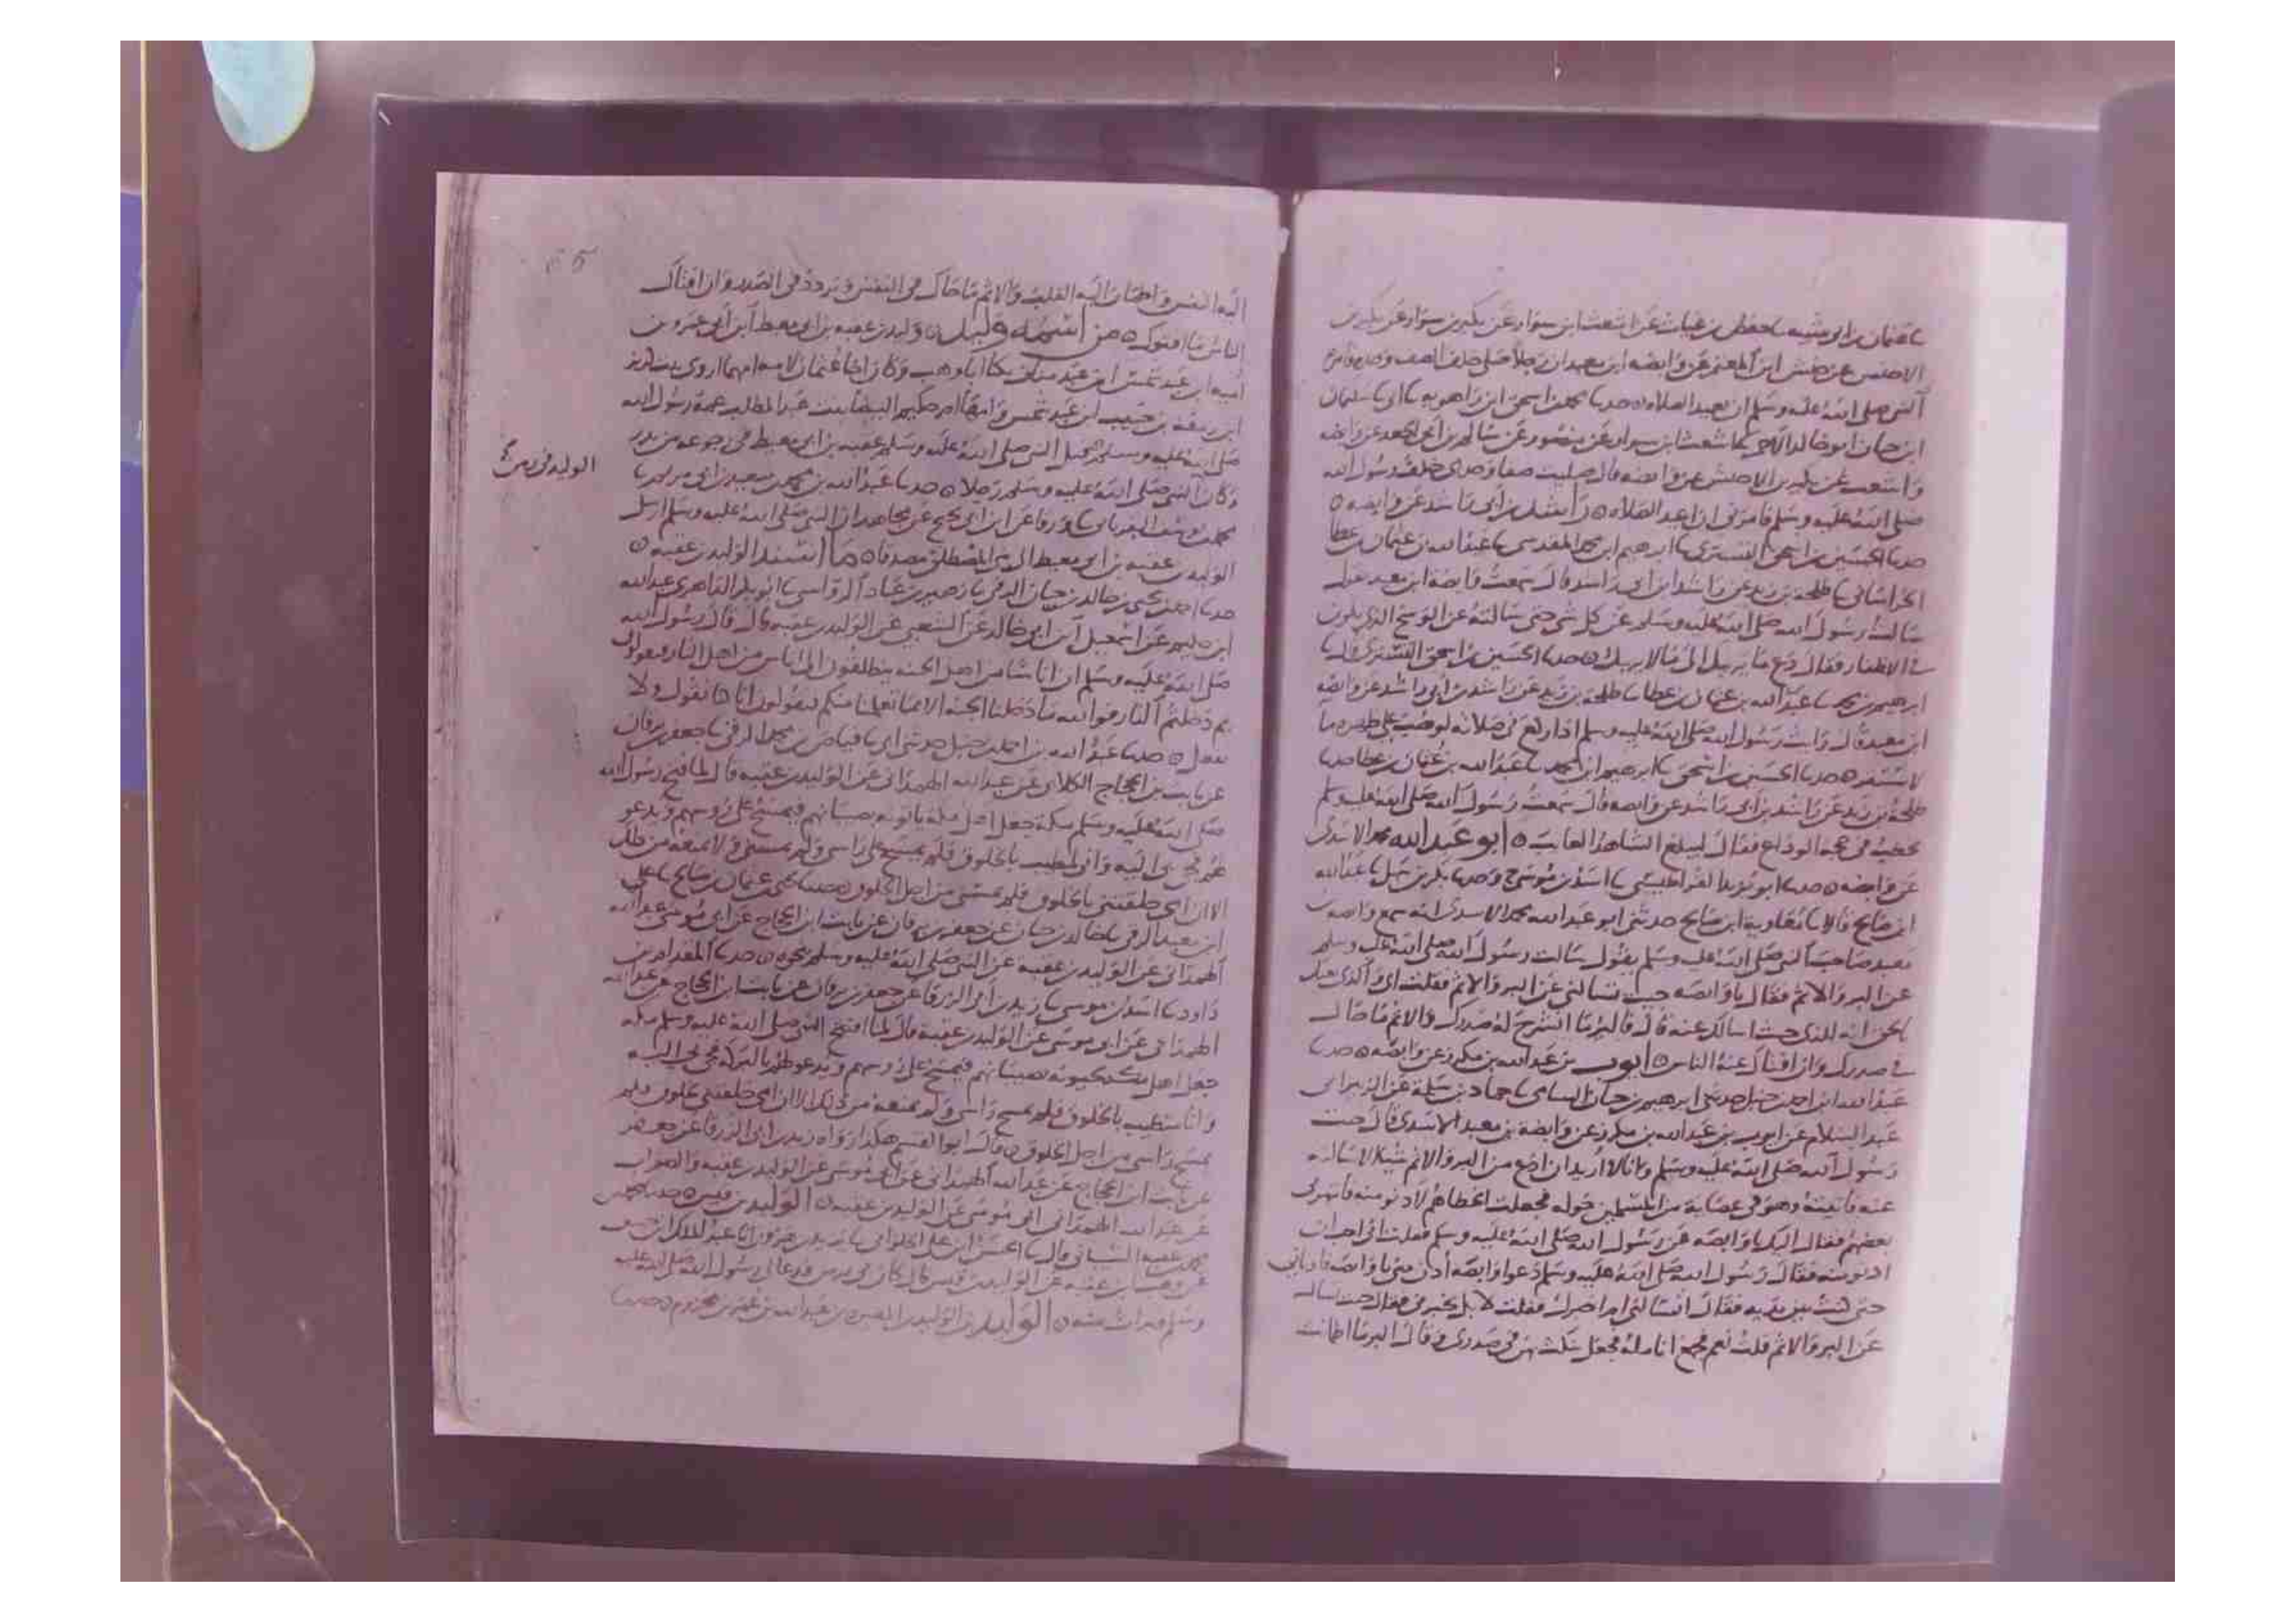 عثمان بن ابي شيبه حفص بن غياث عن اشعث ابن سوار عن بكير
الاخنس عن حنش ابن المعتمر عن وابصه ابن معبد ان رجلا صلى خلف الصف وحده فامره
النبي صلى الله عليه وسلم ان يعيد الصلاه ٥ حدثنا محمد بن اسحق ابن راهويه ابي سليمان
ابن حيان ابو خالد الاحمر اشعث ابن سوار عن منصور عن سالم بن ابي الجعد عن وابصه
واشعث عن بكير بن الاخنس عن وابصه قال صليت صفا وحدى خلف رسول الله
صلى الله عليه وسلم فامرني ان اعيد الصلاه ٥ راشد بن ابي راشد عن وابصه ٥
حدثنا الحسين بن اسحق التستري ابرهيم ابن محمد المقدسي عبد الله بن عثمان بن عطا
الخراساني طلحه بن زيد عن راشد ابن ابي راشد قال سمعت وابصه ابن معبد يقول
سالت رسول الله صلى الله عليه وسلم عن كل شي حتى سالته عن الوسخ الذي يكون
في الاظفار فقال دع ما يريبك الى ما لا يريبك ٥ حدثنا الحسين بن اسحق التستري
ابرهيم بن محمد عبد الله بن عثمان بن عطا طلحه بن زيد عن راشد بن ابي راشد عن وابصه
ابن معبد قال رايت رسول الله صلى الله عليه وسلم اذا ركع في صلاته لو صب على ظهره ما
لاستقر ٥ حدثنا الحسين بن اسحق ابرهيم ابن محمد عبد الله بن عثمان بن عطا حدثنا
طلحة بن زيد عن راشد بن ابي راشد عن وابصه قال سمعت رسول الله صلى الله عليه وسلم
يخطب في حجه الوداع فقال ليبلغ الشاهد الغايب ٥ ابو عبد الله محمد الاسدي
عن وابصه ٥ حدثنا ابو يزيد القراطيسي اسد بن موسى ح وحدثنا بكر بن سهل عبد الله
ابن صالح قالا معاوية ابن صالح حدثني ابو عبد الله محمد الاسدي انه سمع وابصه بن
معبد صاحب النبي صلى الله عليه وسلم يقول سالت رسول الله صلى الله عليه وسلم
عن البر والاثم فقال يا وابصه جيت تسالني عن البر والاثم فقلت اي والذي بعثك
بالحق انه للذي جيت اسالك عنه قال فالبر ما انشرح له صدرك والاثم ما حاك
في صدرك وان افتاك عنه الناس ٥ ايوب بن عبد الله بن مكرز عن وابصه ٥ حدثنا
عبد الله ابن احمد بن حنبل حدثني ابرهيم بن حجاج السامي حماد بن سلمة عن الزبير ابي
عبد السلام عن ايوب بن عبد الله بن مكرز عن وابصة بن معبد الاسدي قال جيت
رسول الله صلى الله عليه وسلم وانا لا اريد ان ادع من البر والاثم شيئا الا سالته
عنه فاتيته وهو في عصابة من المسلمين حوله فجعلت اتخطاهم لادنو منه فانتهرني
بعضهم فقال اليك يا وابصه عن رسول الله صلى الله عليه وسلم فقلت اني احب ان
ادنو منه فقال رسول الله صلى الله عليه وسلم دعوا وابصه أدن مني يا وابصه فادناني
حتى كنت بين يديه فقال اتسالني ام اخبرك فقلت لا بل تخبرني فقال جيت تساله
عن البر والاثم قلت نعم فجمع انامله فجعل ينكت بهن في صدري وقال البر ما اطمانت
اليه النفس واطمان اليه القلب والاثم ما حاك في النفس وتردد في الصدر وان افتاك
الناس وافتوك ٥ من اسمه وليد ٥ وليد بن عقبه بن ابي معيط ابن ابي عمرو بن
اميه ابن عبد شمس ابن عبد مناف يكنا ابا وهب وكان اخا عثمان لامه امهما اروى بنت كريز
ابن ربيعه بن حبيب بن عبد شمس وامها ام حكيم البيضا بنت عبد المطلب عمة رسول الله
صلى الله عليه وسلم قتل النبي صلى الله عليه وسلم عقبه بن ابي معيط في رجوعه من بدر
وكان النبي صلى الله عليه وسلم رجلا ٥ حدثنا عبد الله بن محمد بن سعيد بن ابي مريم
محمد بن يوسف الفريابي ورقا عن ابن ابي نجيح عن مجاهد ان النبي صلى الله عليه وسلم ارسل
الوليد بن عقبه بن ابي معيط الى بني المصطلق مصدقا ٥ ما اسند الوليد بن عقبه ٥
حدثنا احمد بن يحيى بن خالد بن حيان الرقي زهير بن عباد الرواسي ابو بكر الداهري عبد الله
ابن حكيم عن اسمعيل ابن ابي خالد عن الشعبي عن الوليد بن عقبه قال قال رسول الله
صلى الله عليه وسلم ان اناسا من اهل الجنه ينطلقون الى اناس من اهل النار فيقولون
بم دخلتم النار فوالله ما دخلنا الجنه الا بما تعلمنا منكم فيقولون انا كنا نقول ولا
نفعل ٥ حدثنا عبد الله بن احمد بن حنبل حدثني ابي فياض بن محمد الرقي جعفر بن برقان
عن ثابت بن الحجاج الكلابي عن عبد الله الهمداني عن الوليد بن عقبه قال لما فتح رسول الله
صلى الله عليه وسلم مكة جعل اهل مكه ياتونه بصبيانهم فيمسح على رؤسهم ويدعو
لهم فجي بي اليه واني مطيب بالخلوق فلم يمسح على راسي ولم يمنعه من ذلك
الا ان امي خلقتني بالخلوق فلم يمسني من اجل الخلوق ٥ حدثنا يحيى بن عثمان بن صالح علي
ابن معبد الرقي خالد بن حيان عن جعفر بن برقان عن ثابت ابن الحجاج عن ابي موسى عبد الله
الهمداني عن الوليد بن عقبه عن النبي صلى الله عليه وسلم نحوه ٥ حدثنا المقدام بن
داود اسد بن موسى زيد بن ابي الزرقا عن جعفر بن برقان عن ثابت ابن الحجاج عن عبد الله
الهمداني عن ابي موسى عن الوليد بن عقبه قال لما افتتح النبي صلى الله عليه وسلم مكه
جعل اهل مكة يجيونه بصبيانهم فيمسح على رؤسهم ويدعو لهم بالبركة فجي بي اليه
وانا مطيب بالخلوق فلم يمسح راسي ولم يمنعه من ذلك الا ان امي خلقتني بخلوق فلم
يمسح راسي من اجل الخلوق ٥ قال ابو القسم هكذا رواه زيد بن ابي الزرقا عن جعفر
عن ثابت ابن الحجاج عن عبد الله الهمداني عن ابي موسى عن الوليد بن عقبه والصواب
عن عبد الله الهمداني ابي موسى عن الوليد بن عقبه ٥ الوليد بن قيس ٥ حدثنا
محمد بن عقبه الشيباني قال الحسن ابن علي الحلواني يزيد بن هرون انا عبد الملك ابن حسين
عن وهب بن عقبه عن الوليد بن قيس قال كان بي برص فدعا لي رسول الله صلى الله عليه
وسلم فبرات منه ٥ الوليد بن الوليد بن المغيره بن عبد الله بن عمر بن مخزوم ٥ حدثنا